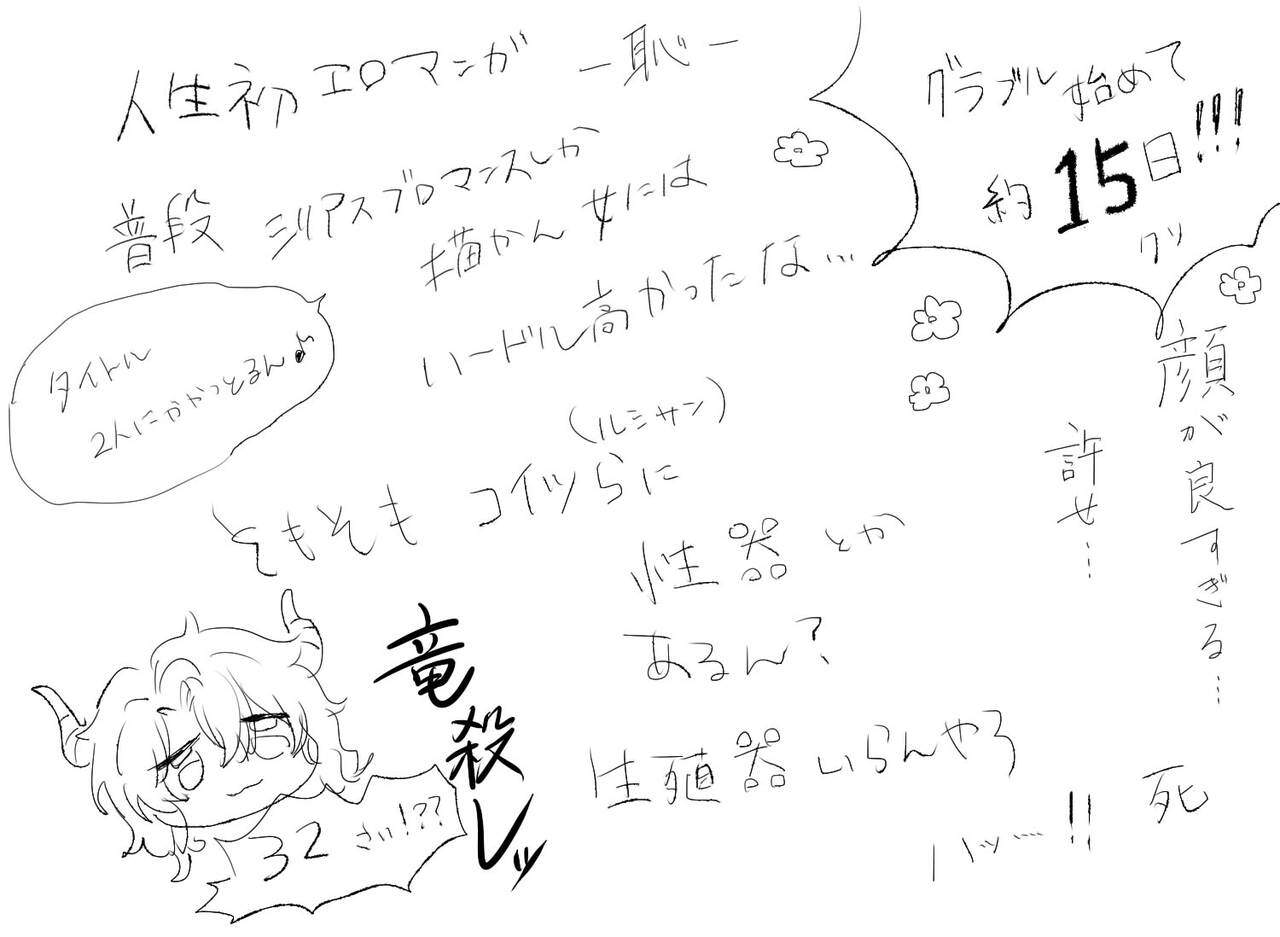 人生初エロマンガ ー恥ー
普段 シリアスブロマンスしか
描かん女には
ハードル高かったな…
グラブル始めて
約15日!!!
タイトル
2人にかかっとるん♪
(ルシサン)
そもそも コイツらに
性器とか
あるん?
生殖器いらんやろ
ハッ……!!
顔が良すぎる…
許せ…
死
竜殺しッ
32さい!??